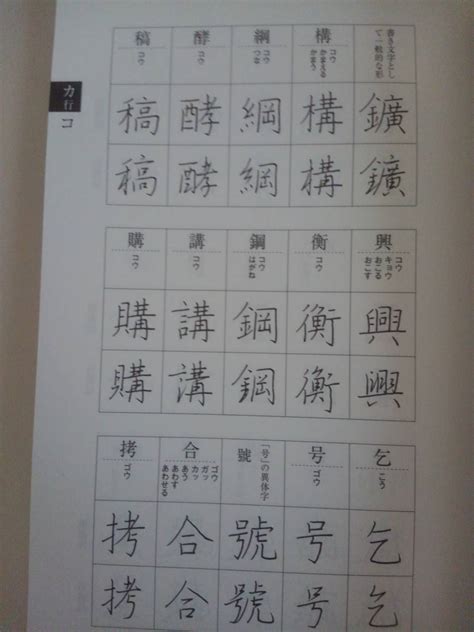 書き文字とし
て一般的な形
鑛
鑛
構
コウ
かまえる
かまう
構
構
綱
コウ
つな
綱
綱
酵
コウ
酵
酵
稿
コウ
稿
稿
カ行
コ
興
コウ
キョウ
おこる
おこす
興
興
衡
コウ
衡
衡
鋼
コウ
はがね
鋼
鋼
講
コウ
講
講
購
コウ
購
購
乞
こう
乞
乞
号
ゴウ
号
号
「号」の異体字
號
號
號
合
ゴウ
ガッ
カッ
あう
あわす
あわせる
合
合
拷
ゴウ
拷
拷